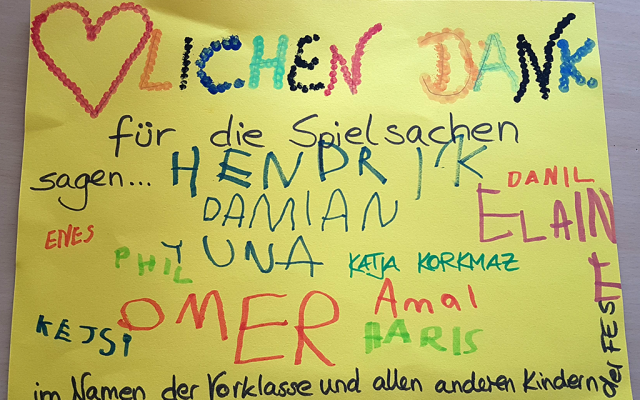 ♥LICHEN DANK
für die Spielsachen
sagen... HENDRIK
DANIL
DAMIAN
ELAINE
ENES
YUNA
PHIL
KATJA KORKMAZ
OMER
Amal
KEJSI
HARIS
im Namen der Vorklasse und allen anderen Kindern
der FESTE